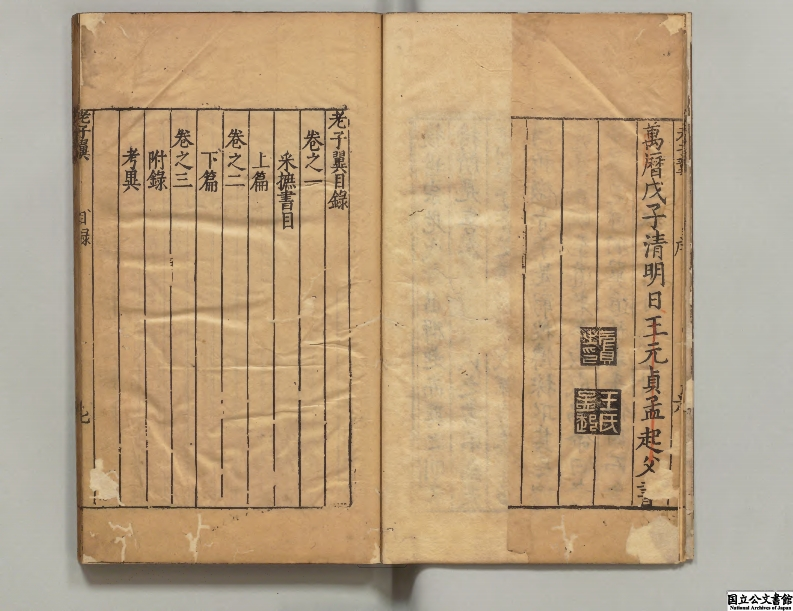 萬曆戊子清明日王元貞孟起父書
王氏孟起
老子翼目錄
卷之一
采摭書目
上篇
卷之二
下篇
卷之三
附錄
考異
老子翼 目錄 七
国立公文書館
National Archives of Japan